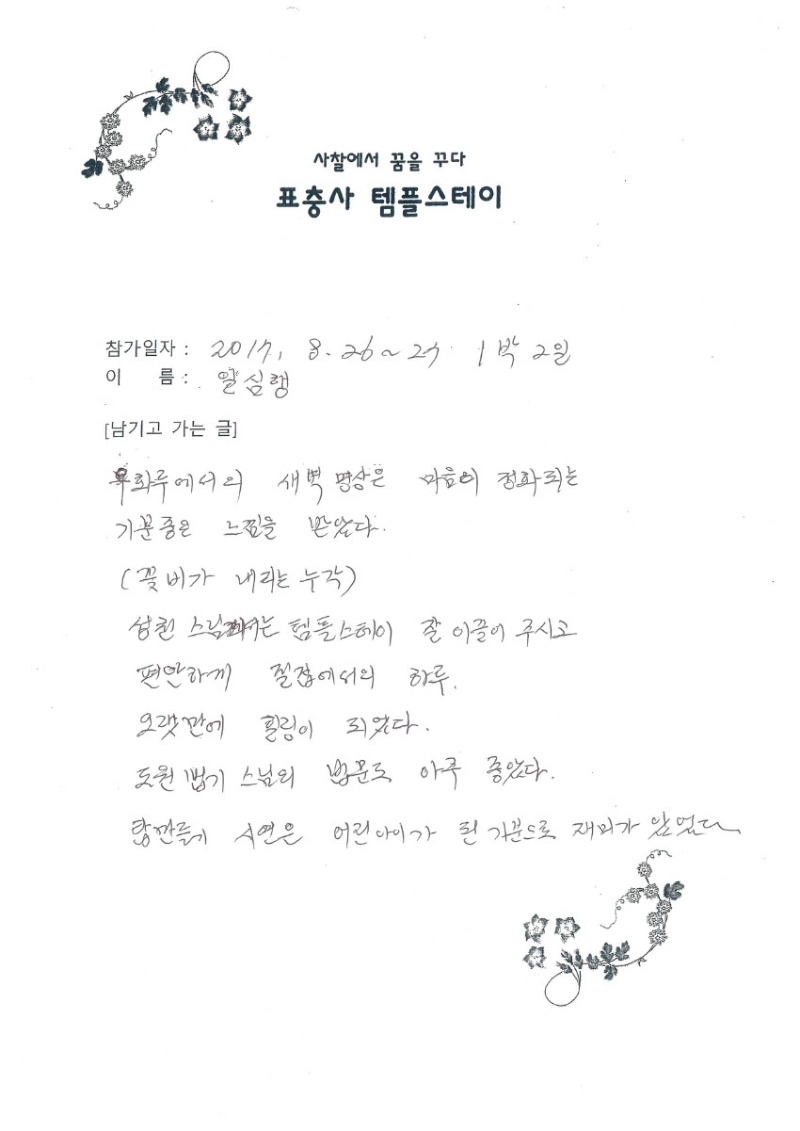 사찰에서 꿈을 꾸다
표충사 템플스테이
참가일자 : 2017, 8. 26 ~ 27 1박 2일
이 름 : 심행
[남기고 가는 글]
우화루에서의 새벽 명상은 마음의 정화되는
기분좋은 느낌을 받았다.
(꽃비가 내리는 누각)
스님께서는 템플스테이 잘 이끌어 주시고
편안하게 절집에서의 하루.
오랫만에 힐링이 되었다.
도원 법기 스님의 법문도 아주 좋았다.
시연은 어린아이가 된 기분으로 재미가 있었다